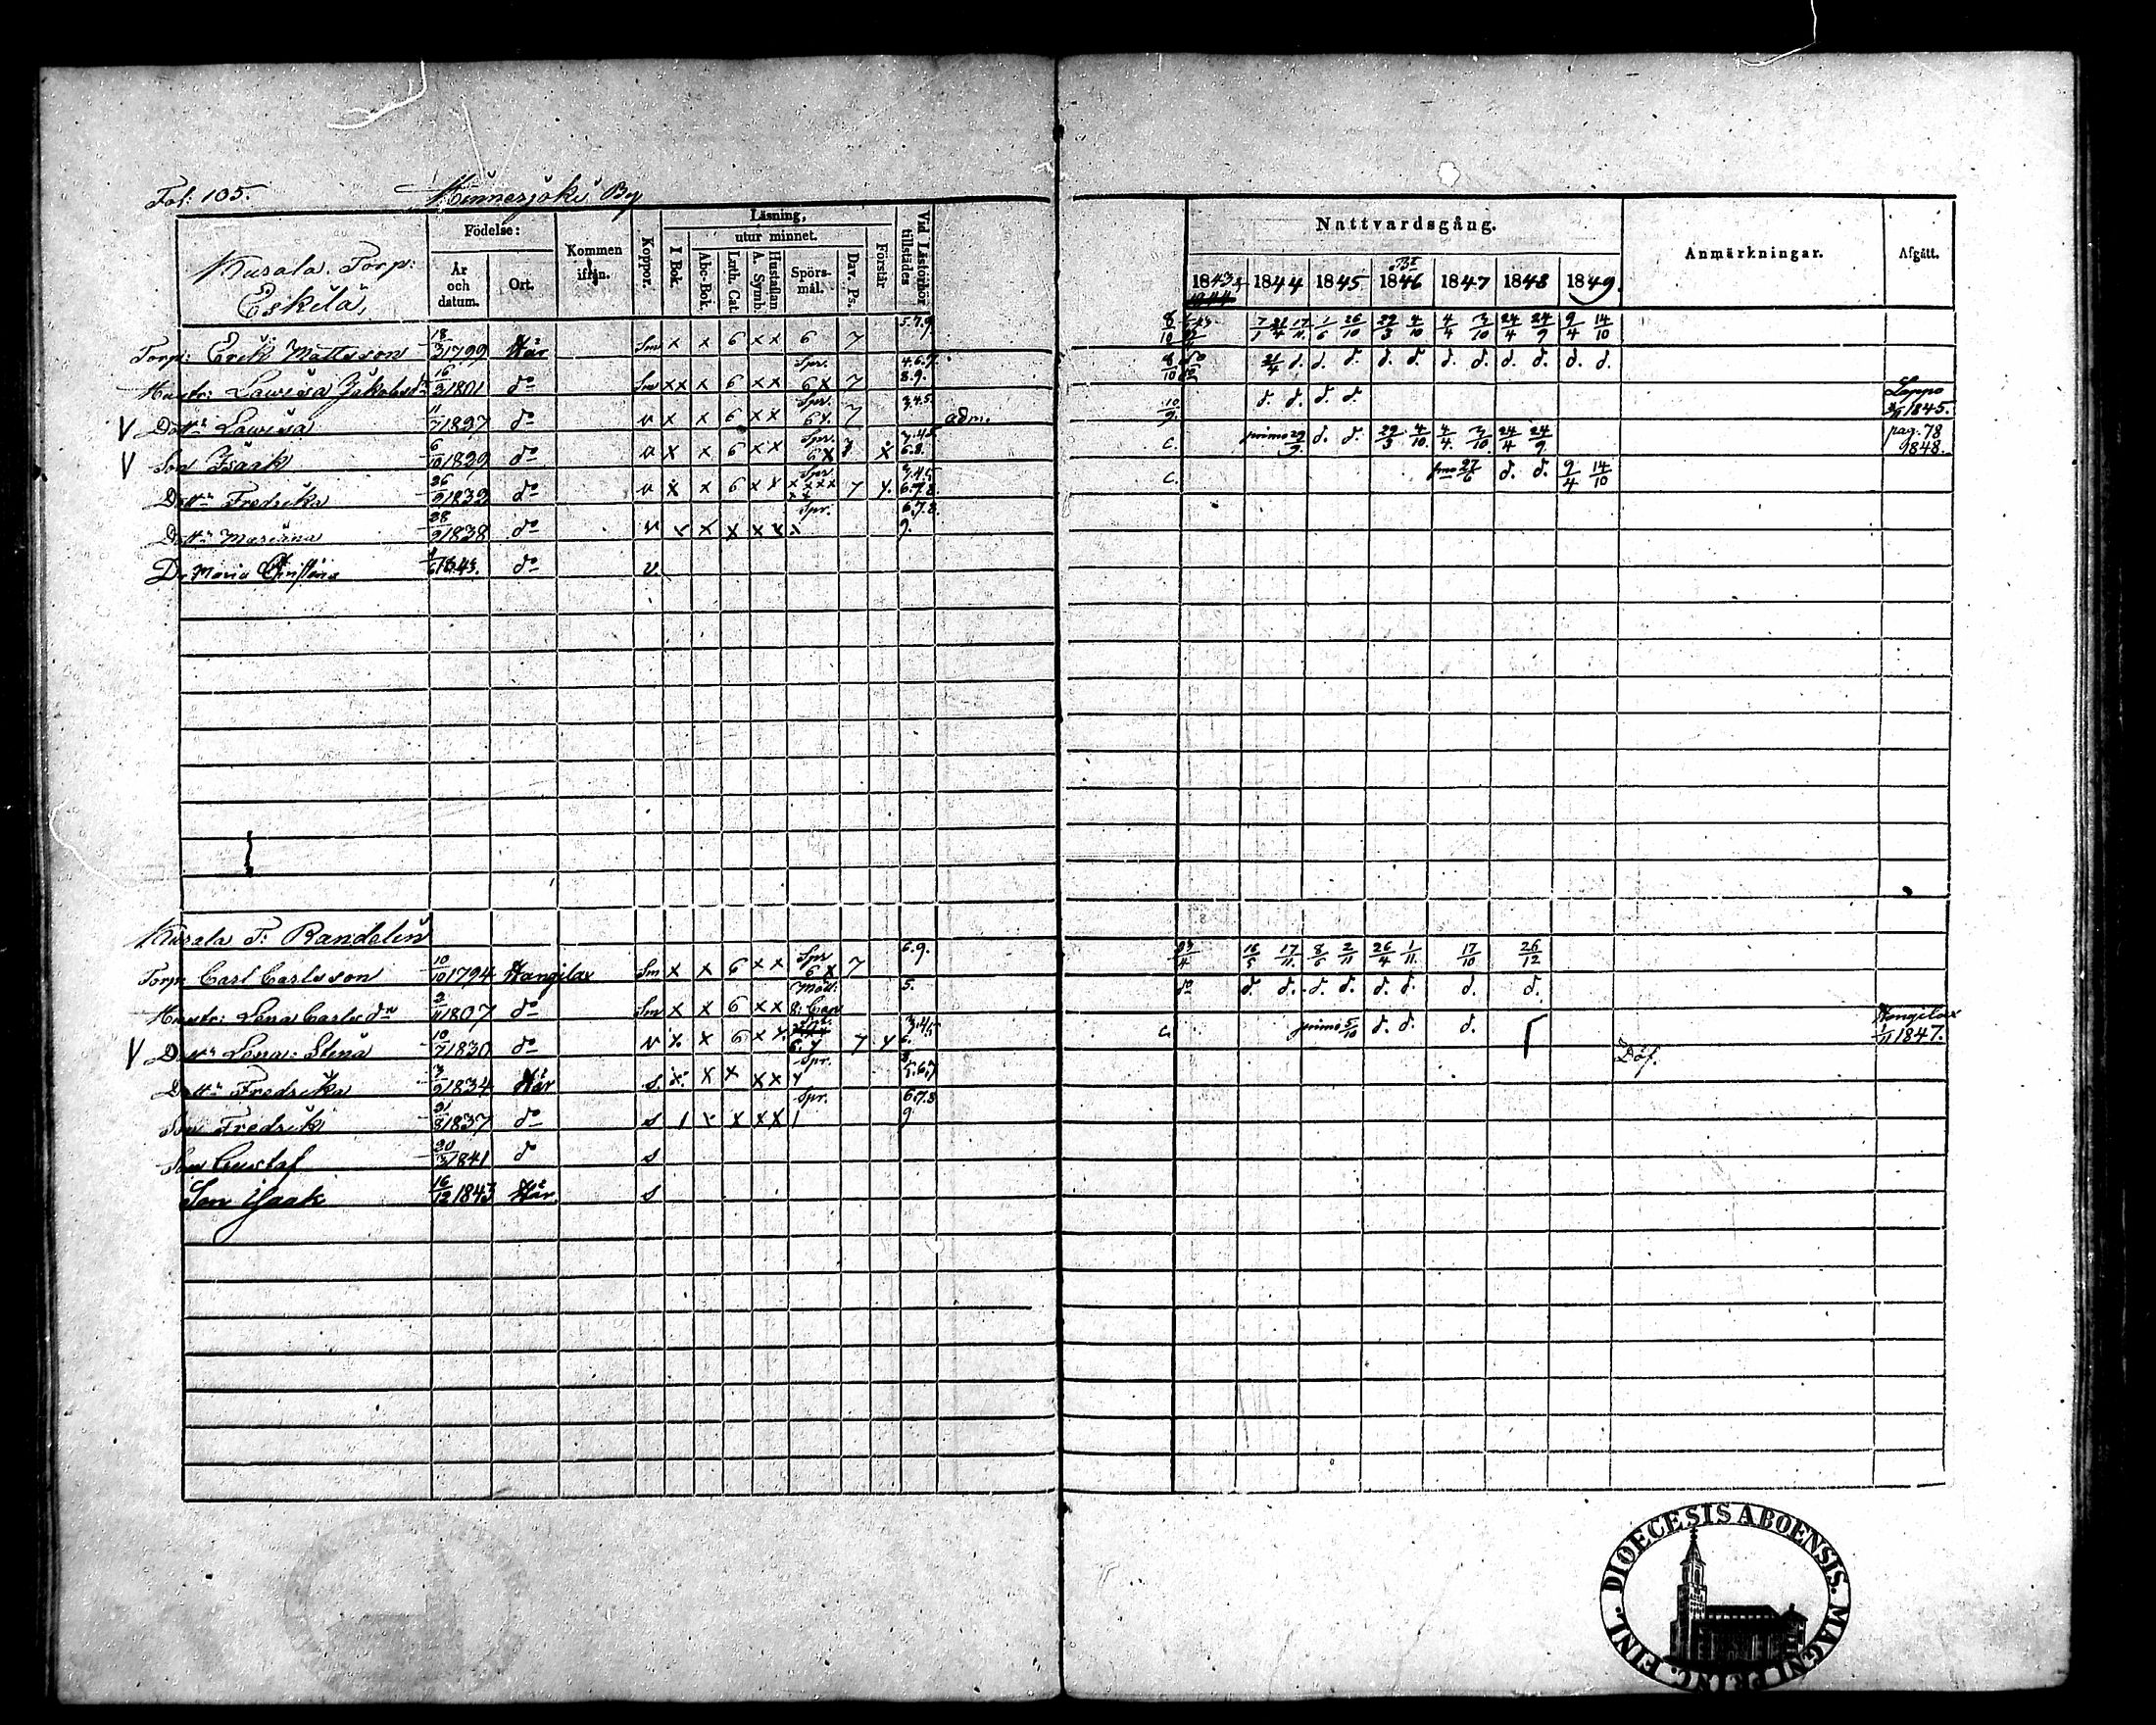 Fol: 105. Hinnerjoki By
Födelse: Läsning, Vid Läsförhör tillstädes Nattvardsgång.
utur minnet.
Kusala Torp: Eskilä,
År och datum. Ort. Kommen ifrån. Koppor. I Bok. Abc-Bok. Luth. Cat. A. Symb. Hustaflan Spörsmål. Dav. Ps. Förstår 1843 1844 1845 1846 1847 1848 1849. Anmärkningar. Afgått.
Torp: Erik Mattsson 18/3 1799 Här Sm x x 6 x x 6 7 5.7.9 8/10 7/7 21/4 17/11 1/6 26/10 29/3 4/10 4/4 3/10 24/4 24/9 9/4 14/10
Hustr: Lovisa Jakobsdr 16/3 1801 do Sm x x x 6 x x Spr. 6 x 7 4.6.7. 8.9. 8/10 do 21/4 d. d. d. d. d. d. d. d. d. d. d.
V Dottr Lovisa 11/7 1827 do v x x 6 x x Spr. 6 x. 7 3.4.5. adm. 10/9. d. d. d. d. Loppo 1845.
V Son Isaak 6/10 1829 do v x x 6 x x Spr. 6 x 7 x 3.4.5. 6.8. C. primo 29/9. d. d. 29/3 4/10. 4/4. 3/10. 24/4 24/9. pag. 78 1848.
Dottr Fredrika 26/9 1832 do v x x 6 x x Spr. x x x x 7 x. 3.4.5. 6.7.8. C. pmo 27/6 d. d. 9/4 14/10
Dottr Maserina 28/9 1838 do v x x x x x Spr. x 6.7.8. 9.
Dr Maria Christina 1843. do v.
Kusala T: Randelin
Torp Carl Carlsson 10/10 1794 Hangilax Sm x x 6 x x Spr 6 x 7 6.9. 16/5 17/11. 8/6 2/11 26/4 1/11. 17/10 26/12
Hustr: Lena Carlsdr 2/11 1807 do Sm x x 6 x x Mått. 8: Cap 5. do d. d. d. d. d. d. d. d.
V Dottr Lena: Stina 10/7 1830 do v x x 6 x x 6 x 7 x 3.4.5. 6. C. primo 5/10 d. d. d. Hangilax 1/11 1847.
Dottr Fredrika 3/9 1834 Här s. x. x x x x Spr. x 5.6.7 Döf.
Son Fredrik 21/8 1837 do s x x x x Spr. 6.7.8 9
Son Gustaf 20/3 1841 do s
Son Isaak 16/12 1843 Här. s
DIOECESIS ABOENSIS. MAGNI PRINC. FINL.